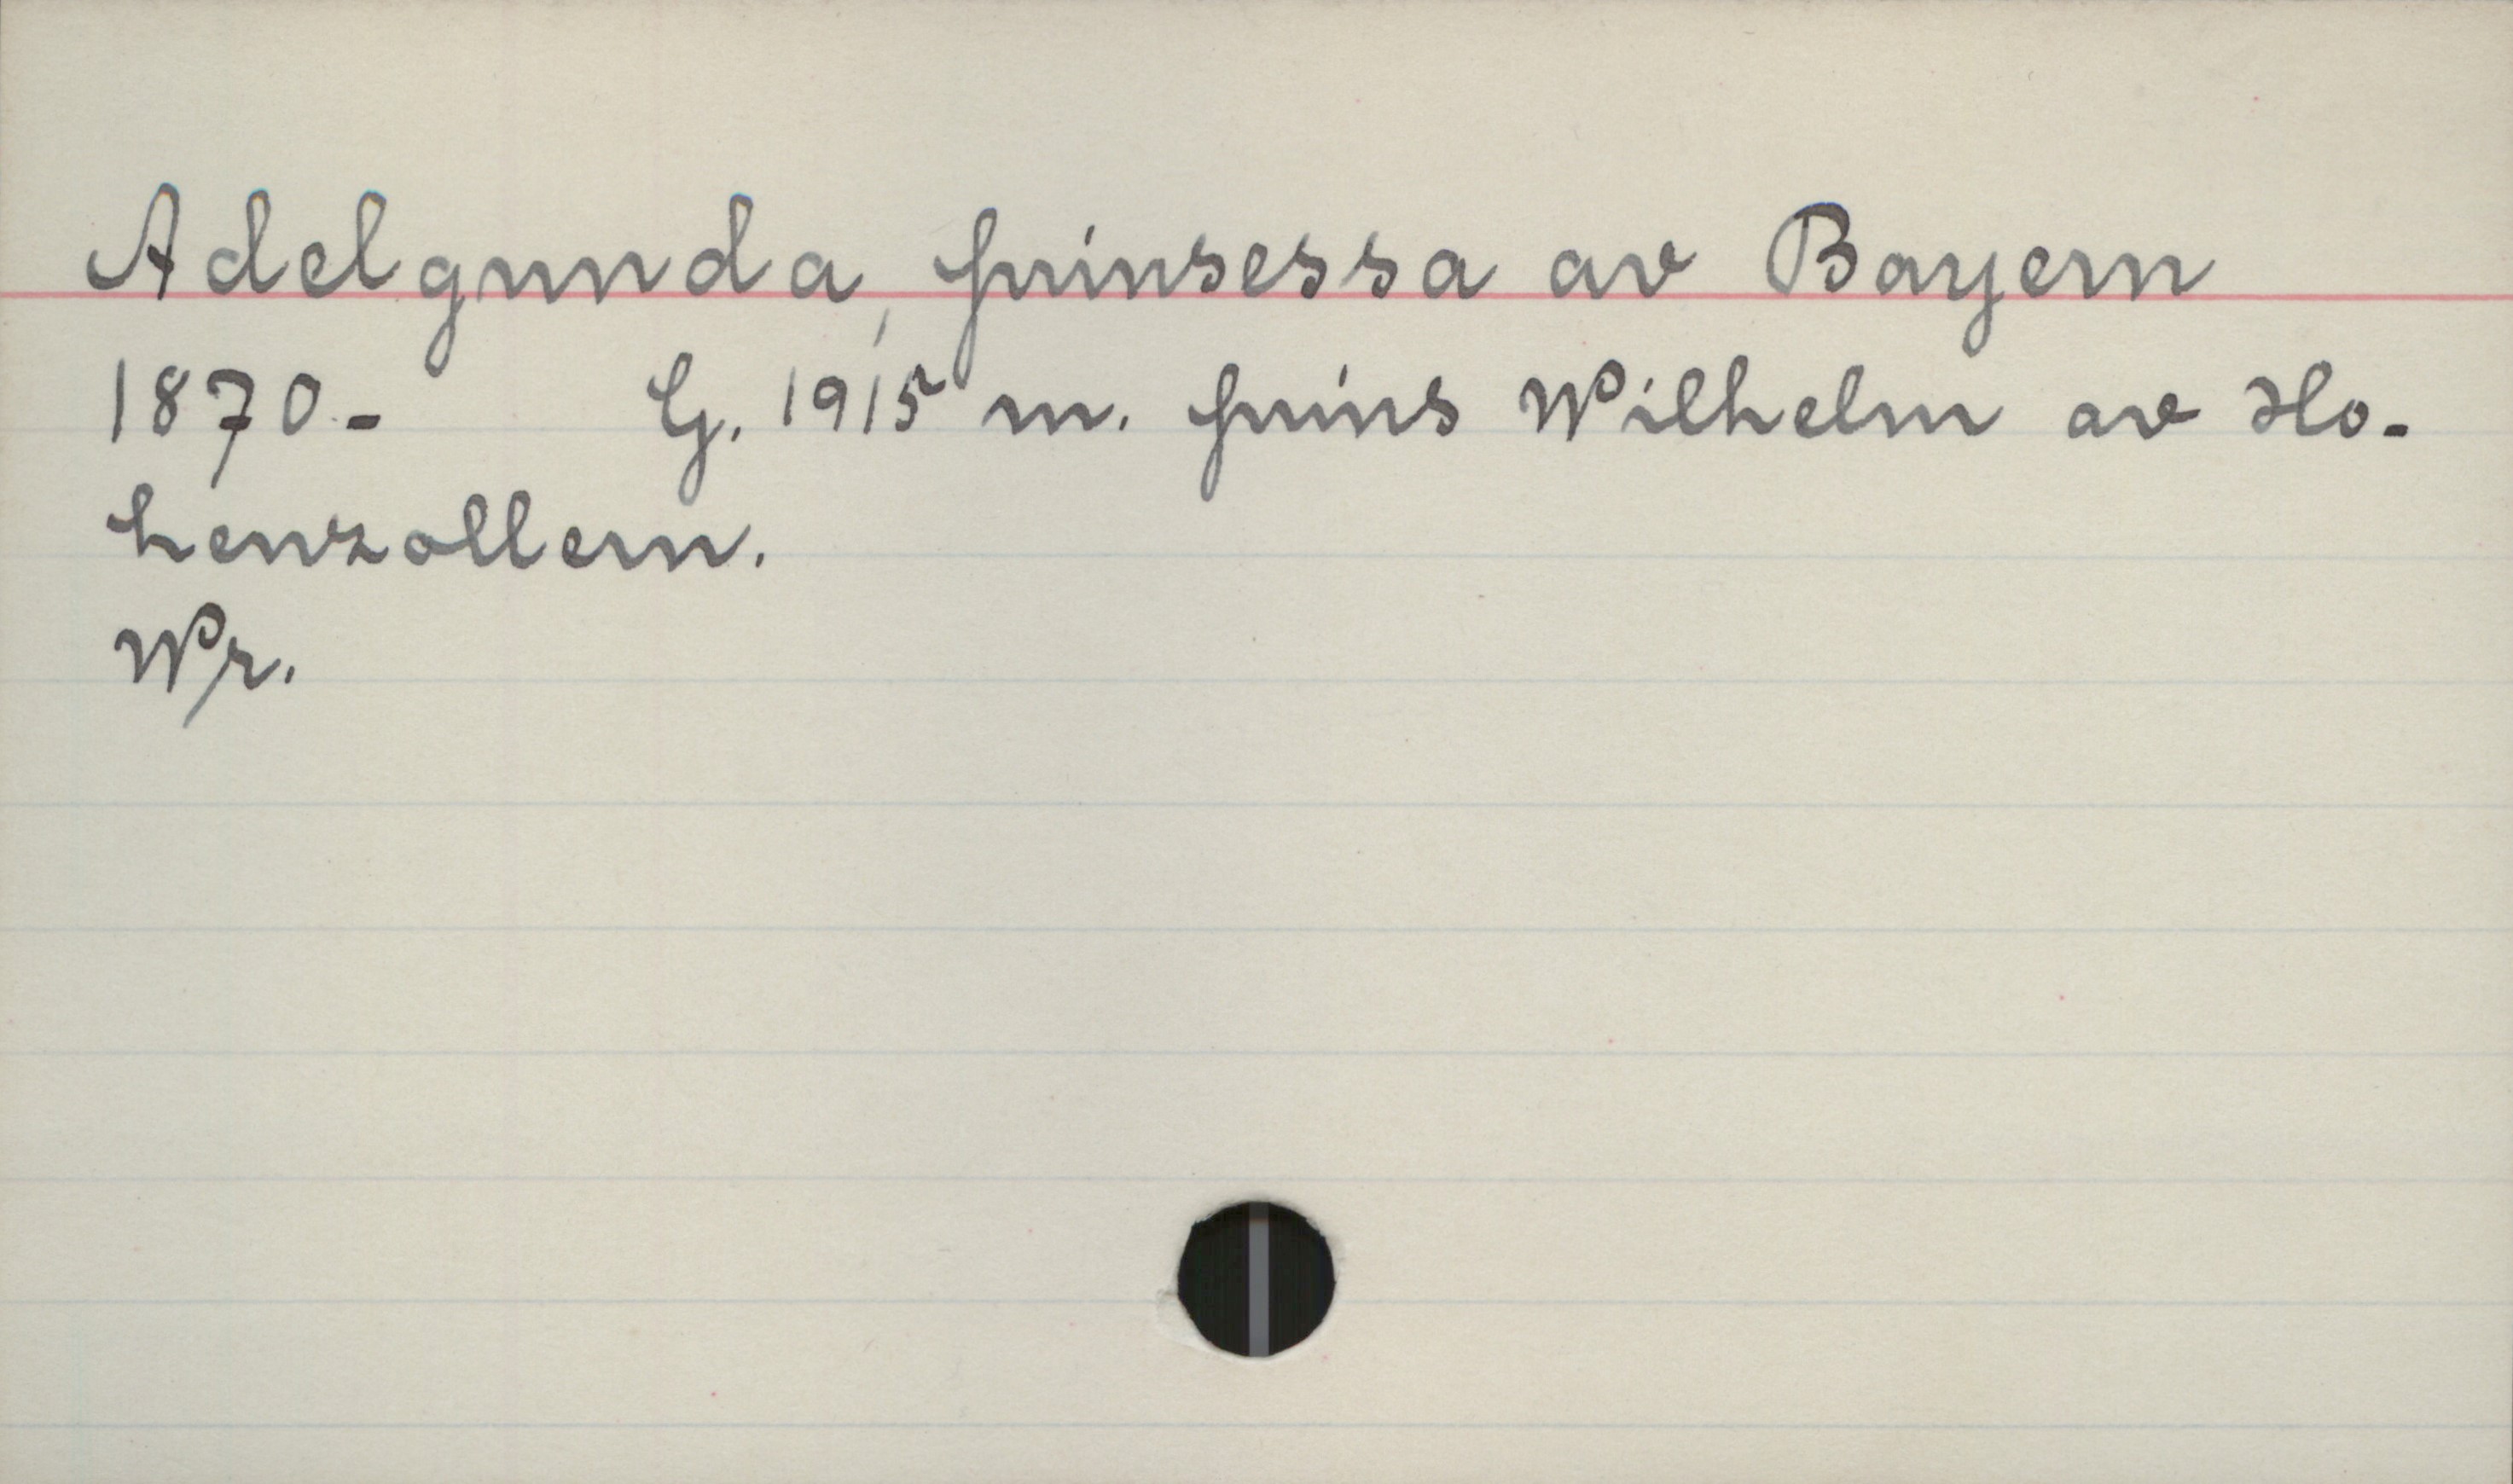 Adelgunda, prinsessa av Bayern
1870- G. 1915 m. prins Wilhelm av Ho-
henzollern.
Wr.